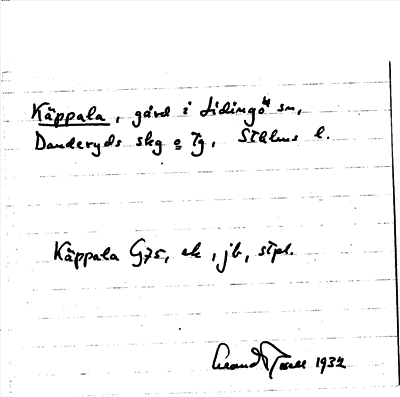 Käppala, gård i Lidingö sn,
Danderyds skg o Tg, Sthlms l.
Käppala G75, ek, jb, stpl.
1932